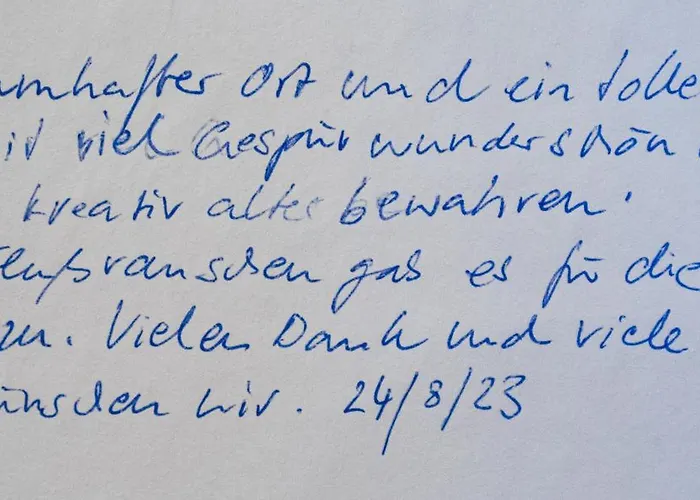 umhafter Ort und ein tolle
it viel Gespür wunderschön
kreativ altes bewahren.
lußrauschen gab es für die
zu. Vielen Dank und viele
ünschen wir. 24/8/23